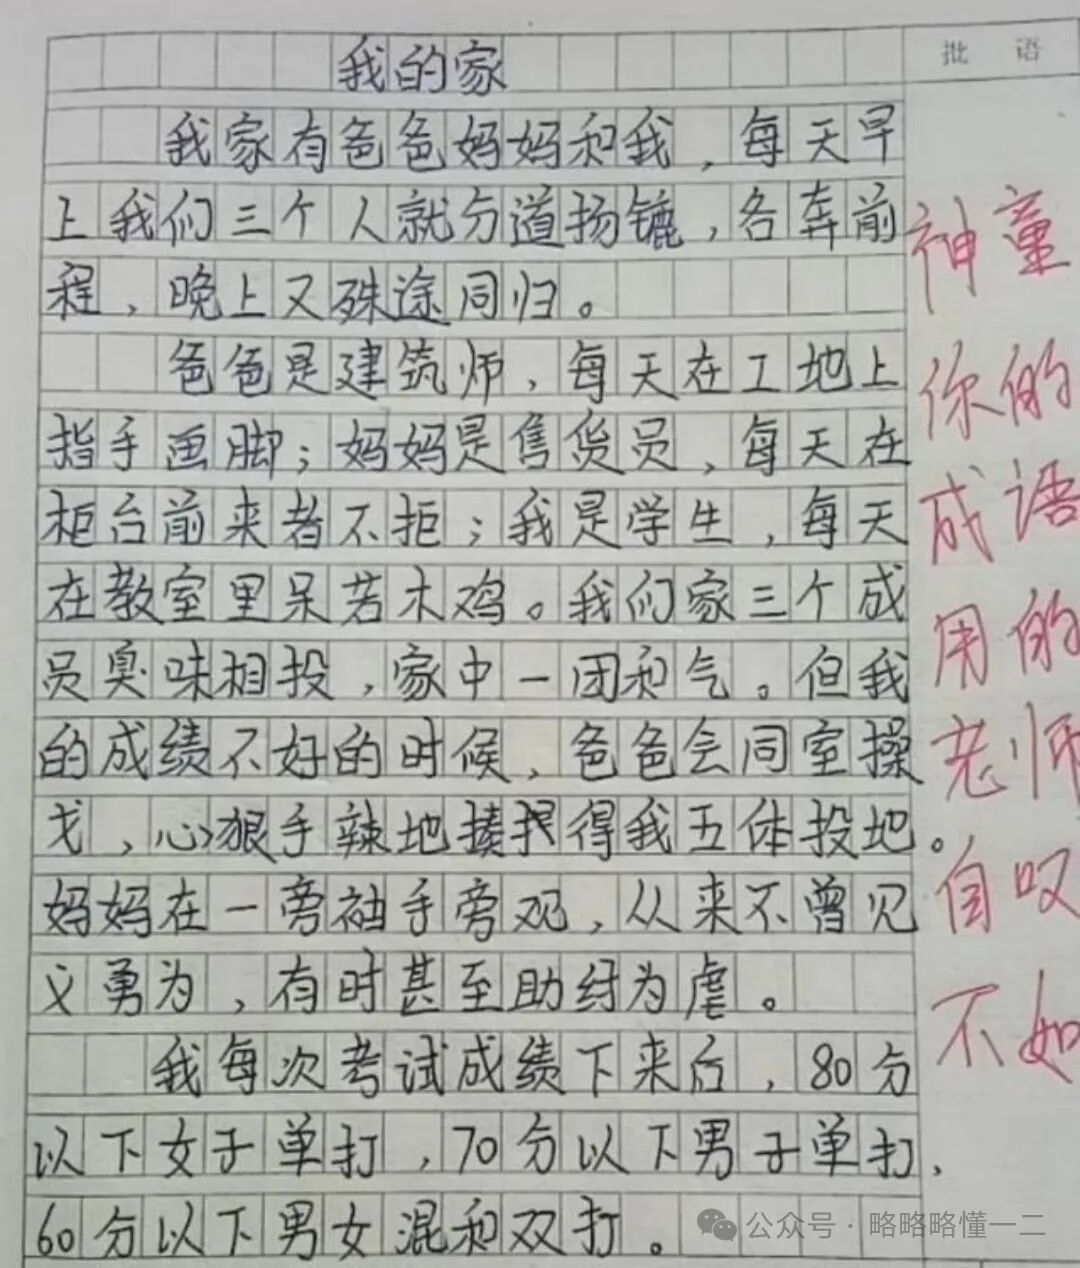 批 语
我的家
我家有爸爸妈妈和我，每天早
上我们三个人就分道扬镳，各奔前
程，晚上又殊途同归。
爸爸是建筑师，每天在工地上
指手画脚；妈妈是售货员，每天在
柜台前来者不拒；我是学生，每天
在教室里呆若木鸡。我们家三个成
员臭味相投，家中一团和气。但我
的成绩不好的时候，爸爸会同室操
戈，心狠手辣地揍得我五体投地。
妈妈在一旁袖手旁观，从来不曾见
义勇为，有时甚至助纣为虐。
我每次考试成绩下来后，80分
以下女子单打，70分以下男子单打，
60分以下男女混和双打。
神童
你的
成语
用的
老师
自叹
不如
公众号·略略略懂一二